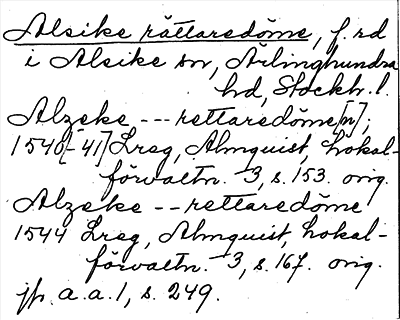 Alsike rättaredöme, f. rd
i Alsike sn, Ärlinghundra
hd, Stockh. l.
Alzeke --- rettaredöme[n];
1540[-41] Lreg, Almquist, Lokal-
förvaltn. 3, s. 153. orig.
Alzeke -- rettaredöme
1544 Lreg, Almquist, Lokal-
förvaltn. 3, s. 167. orig.
jfr a.a. 1, s. 249.